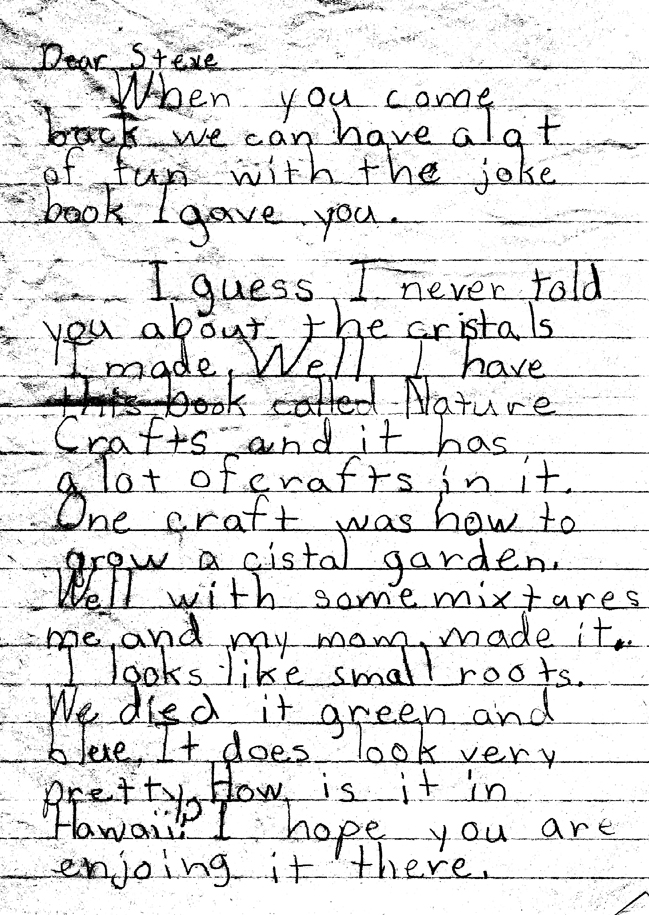 Dear Steve
When you come
back we can have alot
of fun with the joke
book I gave you.
I guess I never told
you about the cristals
I made. Well I have
this book called Nature
Crafts and it has
a lot of crafts in it.
One craft was how to
grow a cistal garden.
Well with some mixtures
me and my mom made it.
I looks like small roots.
We died it green and
blue. It does look very
pretty. How is it in
Hawaii? I hope you are
enjoing it there.